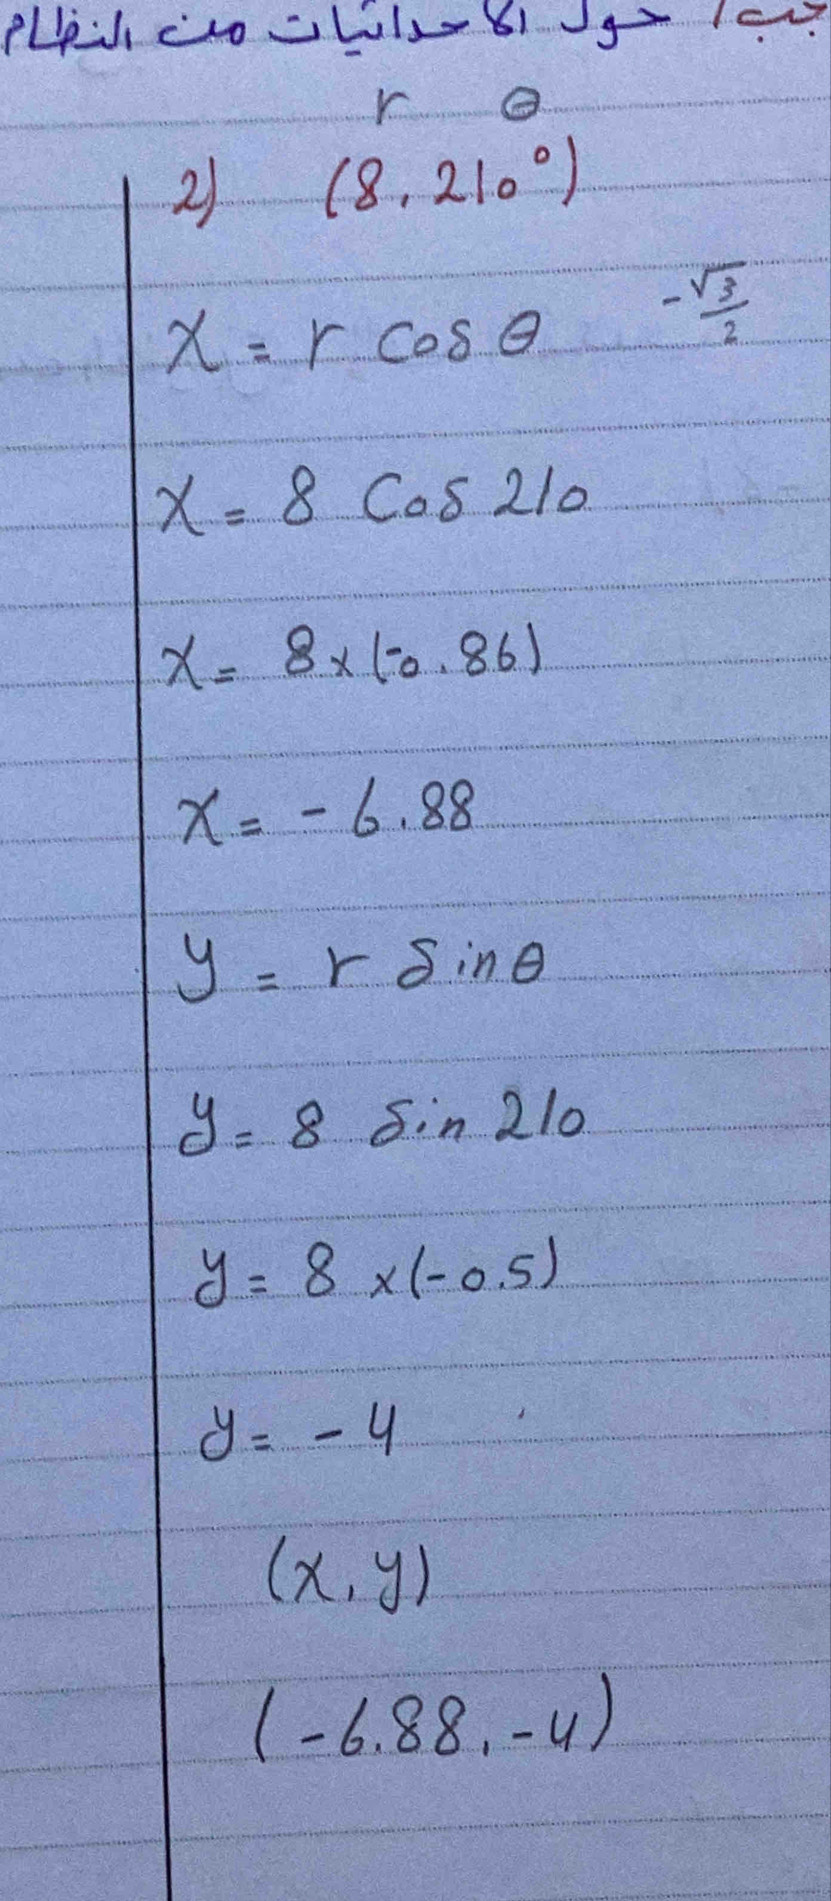 جب / حول الاحداثيات من النظام
r θ
2) (8, 210°)
x = r cos θ -√3/2
x = 8 cos 210
x = 8 x (-0.86)
x = - 6.88
y = r sin θ
y = 8 sin 210
y = 8 x (-0.5)
y = - 4
(x, y)
(-6.88, -4)